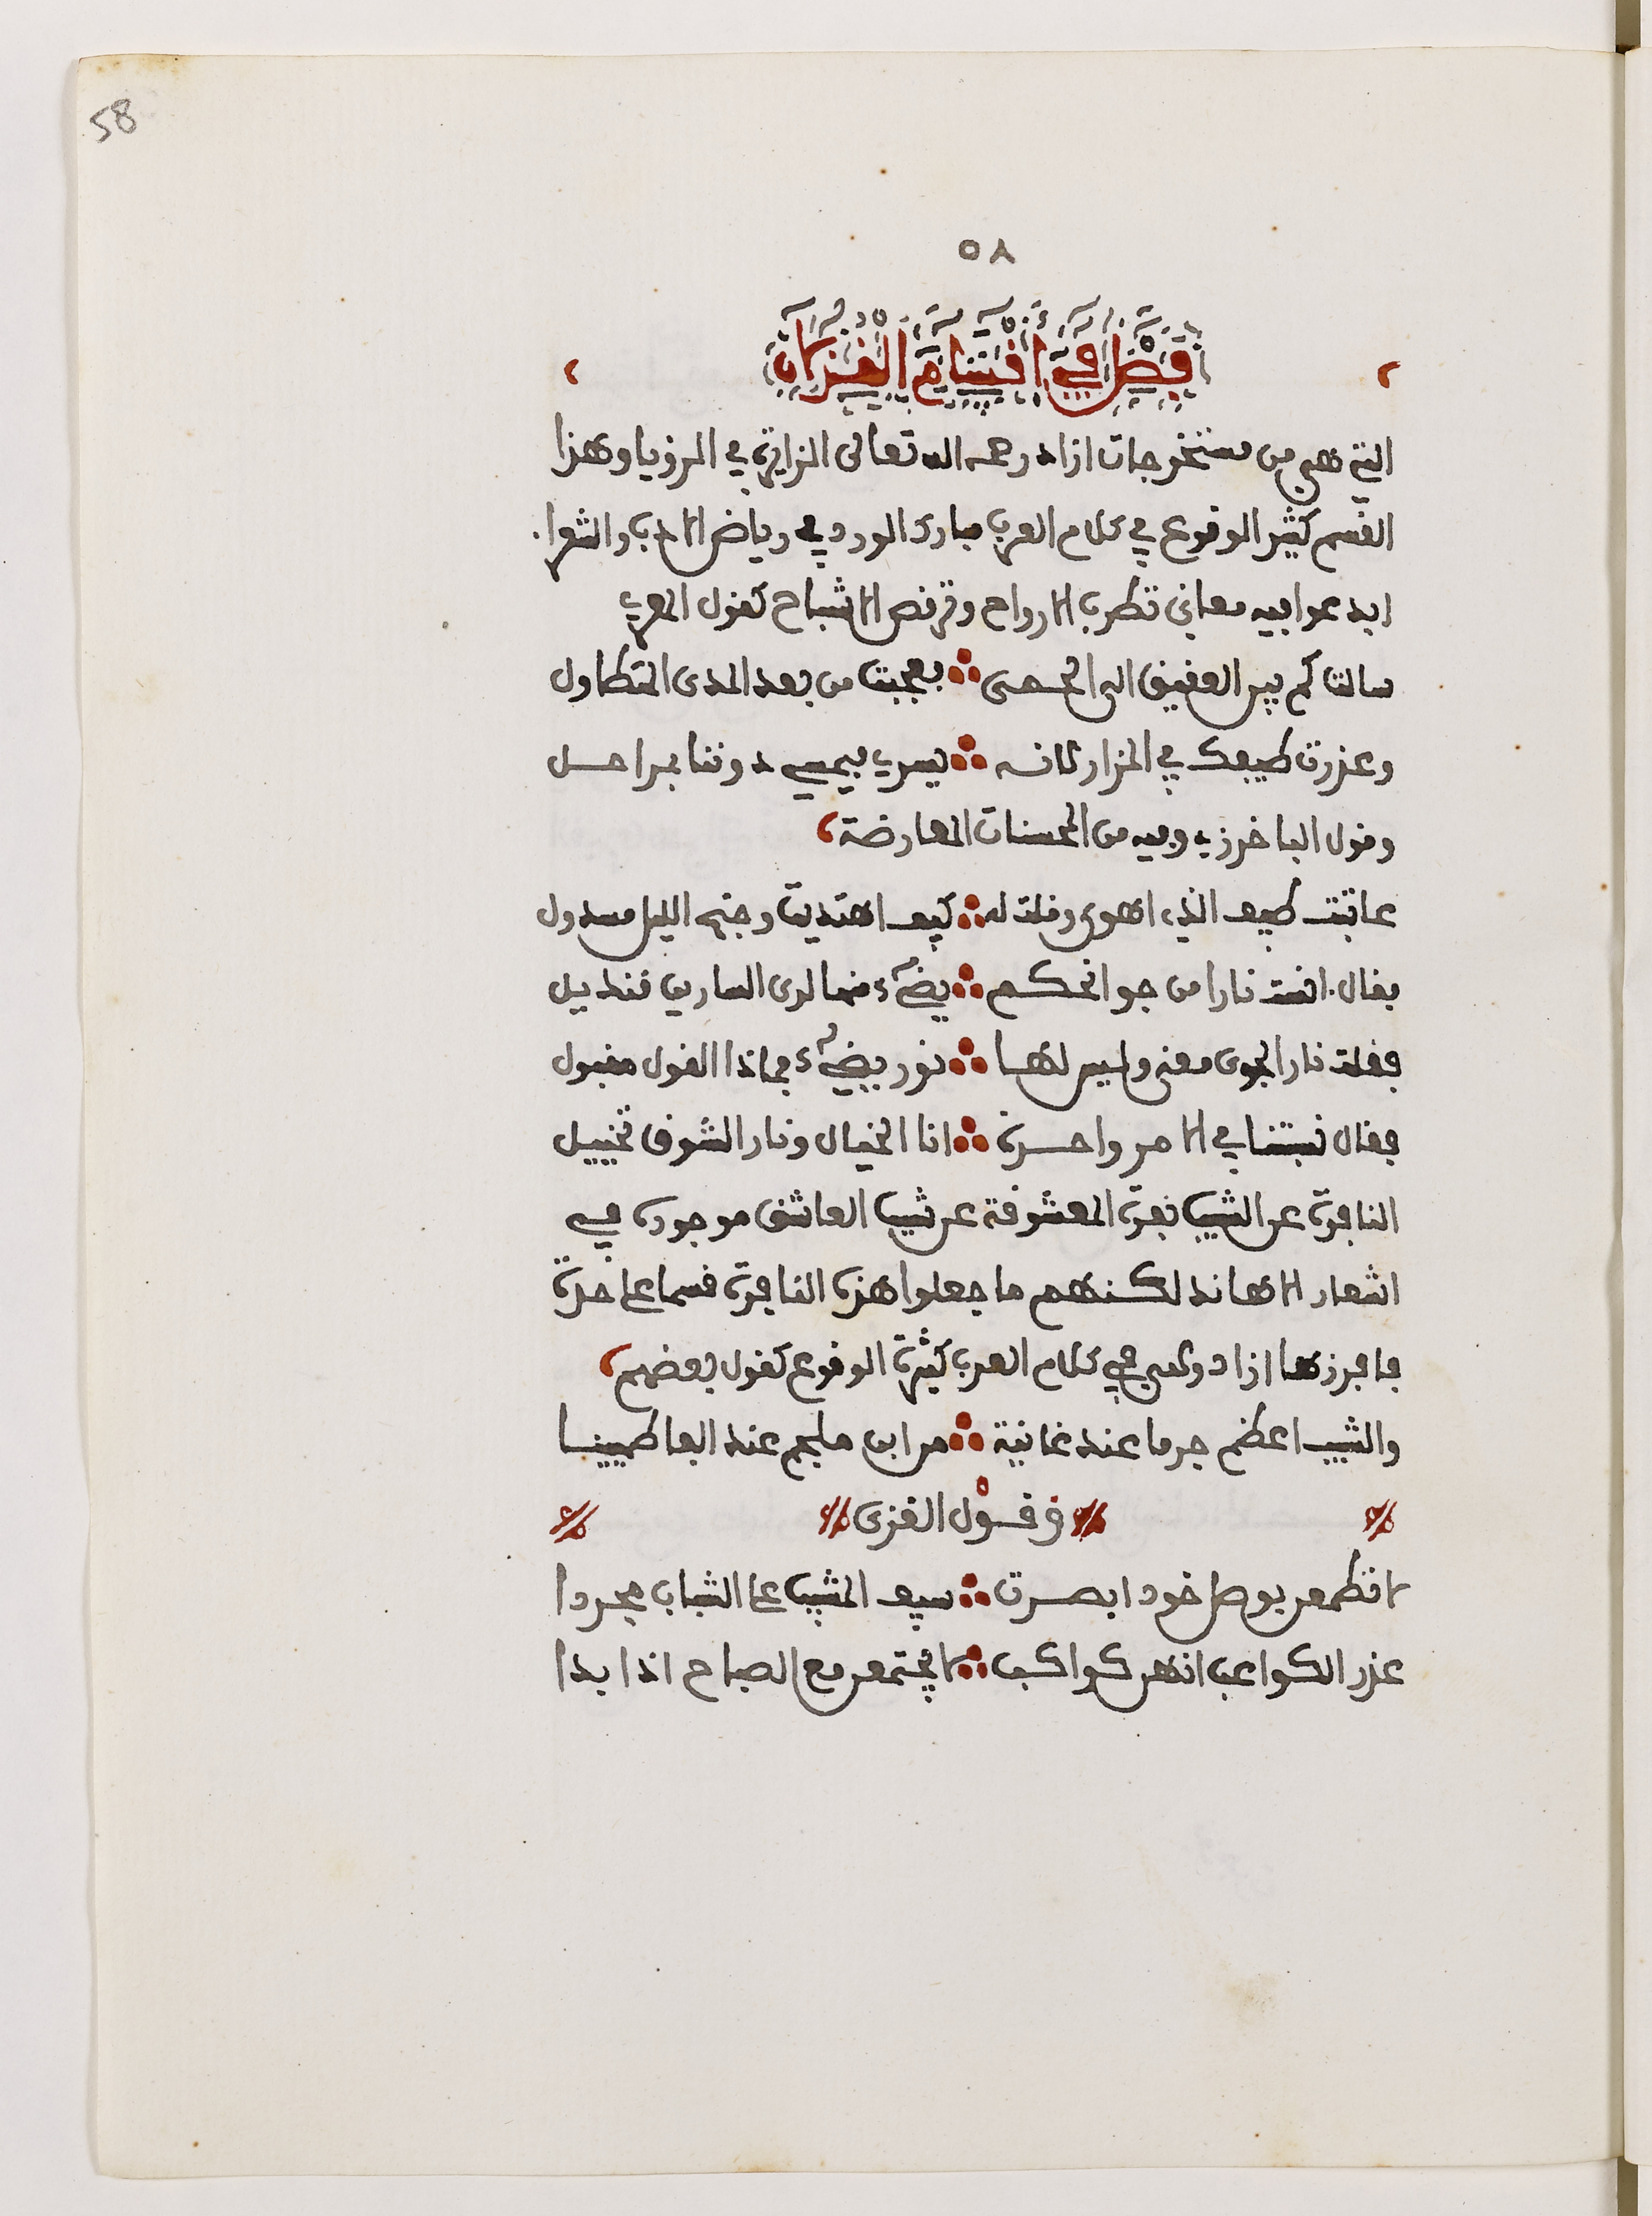 58
٥٨
فَصْلٌ فِي أَقْسَامِ الْغِزْلَانِ
التي هي من مستخرجات ازاد رحمه الله تعالى الزايرة في الرؤيا وهذا
القسم كثير الوقوع في كلام العرب مبارك الورود في رياض الادب والشعرا
ابدعوا فيه معاني تطرب الارواح وترقص الاشباح كقول المعري
سالت كم بين العقيق الى الحمى ∴ فعجبت من بعد المدى المتطاول
وعذرت طيفك في المزار لانه ∴ يسري فيمسي دوننا بمراحل
وقول الباخرزي وفيه من المحسنات المعارضة
عاتبت طيف الذي اهوى وقلت له ∴ كيف اهتديت وجنح الليل مسدول
فقال انست نارا من جوانحكم ∴ يضيء منها لدى السارين قنديل
فقلت نار الجوى معنى وليس لها ∴ نور يضيء فماذا القول مقبول
فقال نسبتنا في الامر واحدة ∴ انا الخيال ونار الشوق تخييل
النافرة عن الشيب نفرة المعشوقة عن شيب العاشق موجودة في
اشعار الاهاند لكنهم ما جعلوا هذه النافرة قسما على حدة
فافرزها ازاد وليس في كلام العرب كثيرة الوقوع كقول بعضهم
والشيب اعظم جرما عند غانية ∴ من ابن ملجم عند الفاطميينا
وقول الغزى
لا تطمعن بوصل خود ابصرت ∴ سيف المشيب على الشباب مجردا
عذر الكواعب انهن كواكب ∴ لا يجتمعن مع الصباح اذا بدا